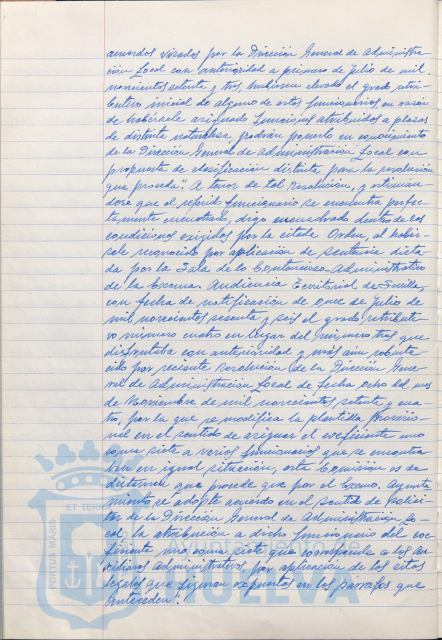 acuerdos visados por la Dirección General de Administra-
ción Local con anterioridad a primero de Julio de mil
novecientos setenta y tres hubiesen elevado el grado retri-
butivo inicial de alguno de estos funcionarios en razón
de habérsele asignado funciones atribuidas a plazas
de distinta naturaleza podrán ponerlo en conocimiento
de la Dirección General de Administración Local con
propuesta de clasificación distinta para la resolución
que proceda". A tenor de tal resolución, y estimán-
dose que el referido funcionario se encuentra perfec-
tamente encuetrado, digo encuadrado dentro de las
condiciones exigidas por la citada Orden, al habér-
sele reconocido por aplicación de sentencia dicta-
da por la Sala de lo Contencioso-Administrativo
de la Excma. Audiencia Territorial de Sevilla,
con fecha de notificación de once de Julio de
mil novecientos sesenta y seis el grado retributi-
vo número cuatro en lugar del número tres que
disfrutaba con anterioridad y más aún robuste-
cido por reciente resolución de la Dirección Gene-
ral de Administración Local de fecha ocho del mes
de Noviembre de mil novecientos setenta y cua-
tro, por la que se modifica la plantilla Provisio-
nal en el sentido de asignar el coeficiente uno
coma siete a varios funcionarios que se encontra-
ban en igual situación, esta Comisión es de
dictamen que procede que por el Excmo. Ayunta-
miento se adopte acuerdo en el sentido de solici-
tar de la Dirección General de Administración Lo-
cal, la atribución a dicho funcionario del coe-
ficiente uno coma siete que corresponde a los Au-
xiliares Administrativos por aplicación de las citas
legales que figuran expuestas en los párrafos que
anteceden".
PORTUS MARIS
ET TERR
HUELVA